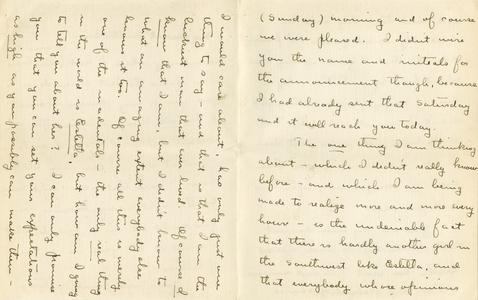 (Sunday) morning and of course
we were pleased. I didn't wire
you the name and initials for
the announcement though, because
I had already sent that Saturday
and it will reach you today.
The one thing I am thinking
about - which I didn't really know
before - and which I am being
made to realize more and more every
hour - is the undeniable fact
that there is hardly another girl in
the Southwest like Estilla, and
that everybody whose opinions
I would care about, has only just one
thing to say - and that is that I am the
luckiest man that ever lived. Of course I
know that I am, but I didn't know to
what an amazing extent everybody else
knows it too. Of course all this is merely
one of the incidentals - the only real thing
in the world is Estilla, but how can I going
to tell you about her? I can only promise
you that you can set your expectations
as high as you possibly can make them -